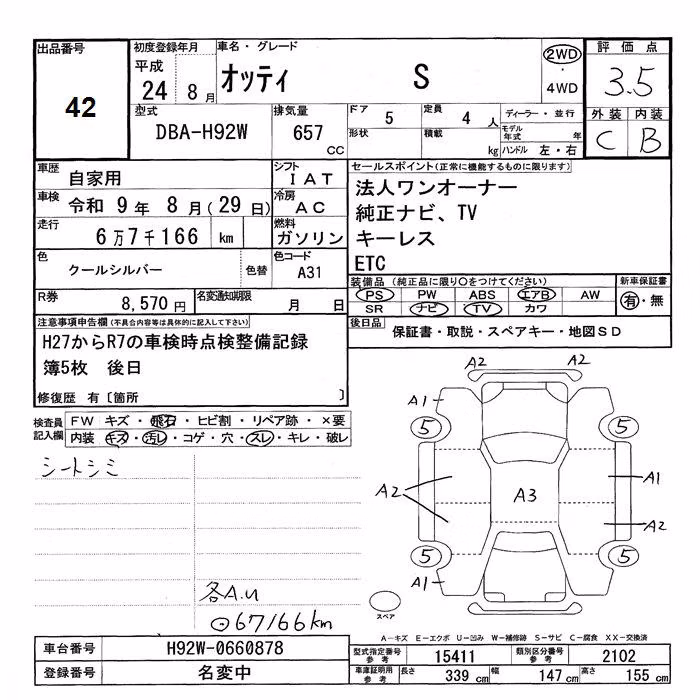 出品番号
42
初度登録年月
平成
24 8月
車名・グレード
オッティ S
2WD
・
4WD
評価点
3.5
外装 内装
C B
型式
DBA-H92W
排気量
657
CC
ドア 5
定員 4人
ディーラー・並行
形状
積載 kg
モデル年式 年
ハンドル 左・右
車歴
自家用
シフト
IAT
車検 令和 9年 8月(29日)
冷房
AC
走行
6万7千166 km
燃料
ガソリン
色
クールシルバー
色替
色コード
A31
R券
8,570円
名変通知期限
月 日
セールスポイント(正常に機能するものに限ります)
法人ワンオーナー
純正ナビ、TV
キーレス
ETC
装備品(純正品に限り○をつけてください)
新車保証書
PS PW ABS エアB AW
SR ナビ TV カワ
有・無
後日品
保証書・取説・スペアキー・地図SD
注意事項申告欄(不具合内容等は具体的に記入して下さい)
H27からR7の車検時点検整備記録
簿5枚 後日
修復歴 有〔箇所 〕
検査員
記入欄
FW キズ・飛石・ヒビ割・リペア跡・×要
内装 キズ・汚レ・コゲ・穴・スレ・キレ・破レ
シートシミ
各A.U
⊙67166km
A2 A2
A1
5 5
A2
A3
A1
A2
5 5
A1
スペア
A−キズ E−エクボ U−凹み W−補修跡 S−サビ C−腐食 XX−交換済
車台番号
H92W-0660878
登録番号
名変中
型式指定番号
参考
15411
類別区分番号
参考
2102
車庫証明用
参考
長さ 339 cm
幅 147 cm
高さ 155 cm